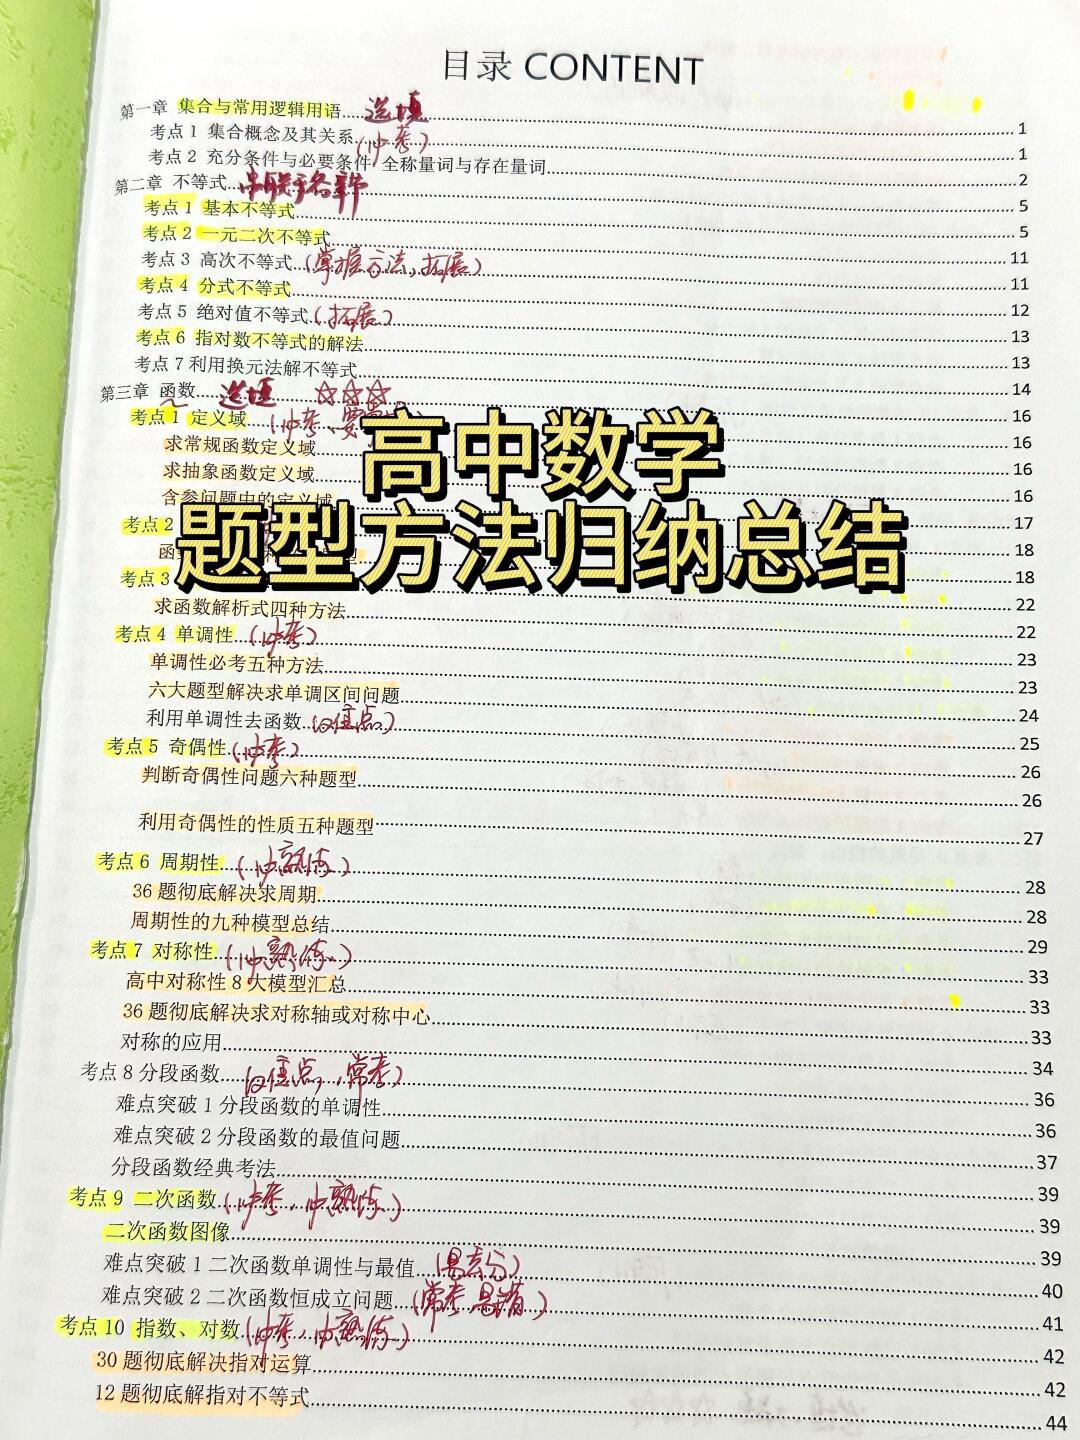 目录 CONTENT
第一章 集合与常用逻辑用语 选填 1
考点1 集合概念及其关系(必考) 1
考点2 充分条件与必要条件 全称量词与存在量词 2
第二章 不等式 串联于各章节 5
考点1 基本不等式 5
考点2 一元二次不等式 11
考点3 高次不等式(掌握方法,拓展) 11
考点4 分式不等式 12
考点5 绝对值不等式(拓展) 13
考点6 指对数不等式的解法 13
考点7利用换元法解不等式 14
第三章 函数 选填 ☆☆☆ 16
考点1 定义域(必考、 16
求常规函数定义域 16
求抽象函数定义域 16
含参问题中的定义域 17
高中数学
题型方法归纳总结
考点2 18
函 18
考点3 22
求函数解析式四种方法 22
考点4 单调性(必考) 23
单调性必考五种方法 23
六大题型解决求单调区间问题 24
利用单调性去函数(重点) 25
考点5 奇偶性(必考) 26
判断奇偶性问题六种题型 26
利用奇偶性的性质五种题型 27
考点6 周期性(必熟练) 28
36题彻底解决求周期 28
周期性的九种模型总结 29
考点7 对称性(必熟练) 33
高中对称性8大模型汇总 33
36题彻底解决求对称轴或对称中心 33
对称的应用 34
考点8分段函数(重点,常考) 36
难点突破1分段函数的单调性 36
难点突破2分段函数的最值问题 37
分段函数经典考法 39
考点9 二次函数(必考,必熟练) 39
二次函数图像 39
难点突破1二次函数单调性与最值(易丢分) 40
难点突破2二次函数恒成立问题(常考 易错) 41
考点10 指数、对数(必考,必熟练) 42
30题彻底解决指对运算 42
12题彻底解指对不等式 44